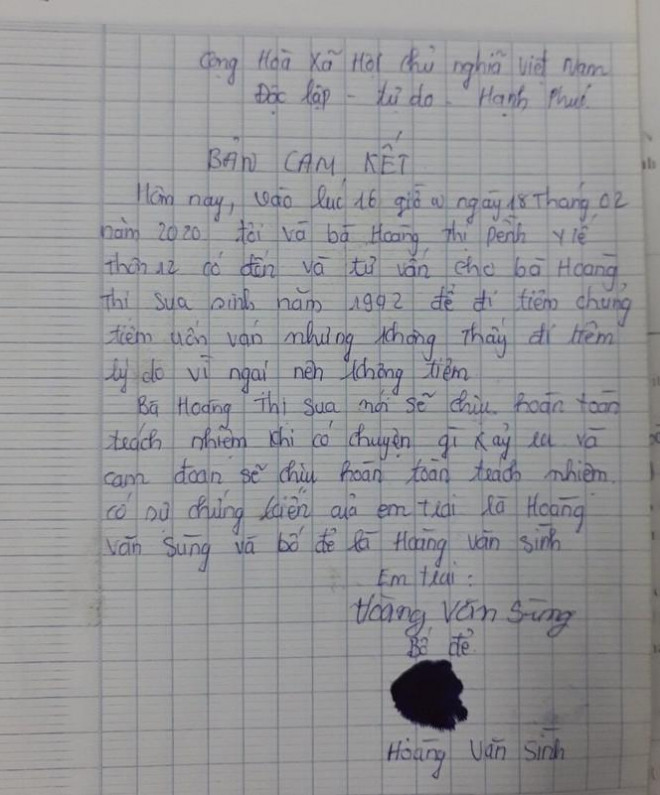 Cộng Hoà Xã Hội chủ nghiã việt Nam
Độc lập - tự do - Hạnh Phúc
BẢN CAM KẾT
Hôm nay, vào lúc 16 giờ ngày 18 Tháng 02
năm 2020 tôi và bà Hoàng Thị Pènh y tế
thôn 12 có đến và tư vấn cho bà Hoàng
Thị Sua sinh năm 1992 để đi tiêm chủng
tiêm uốn ván nhưng không thấy đi tiêm
lý do vì ngại nên không tiêm
Bà Hoàng Thị Sua nói sẽ chịu hoàn toàn
trách nhiệm khi có chuyện gì xảy ra và
cam đoan sẽ chịu hoàn toàn trách nhiệm.
có sự chứng kiến của em trai là Hoàng
Văn Sùng và bố đẻ là Hoàng Văn Sình
Em trai :
Hoàng Văn Sùng
Bố đẻ
Hoàng Văn Sình